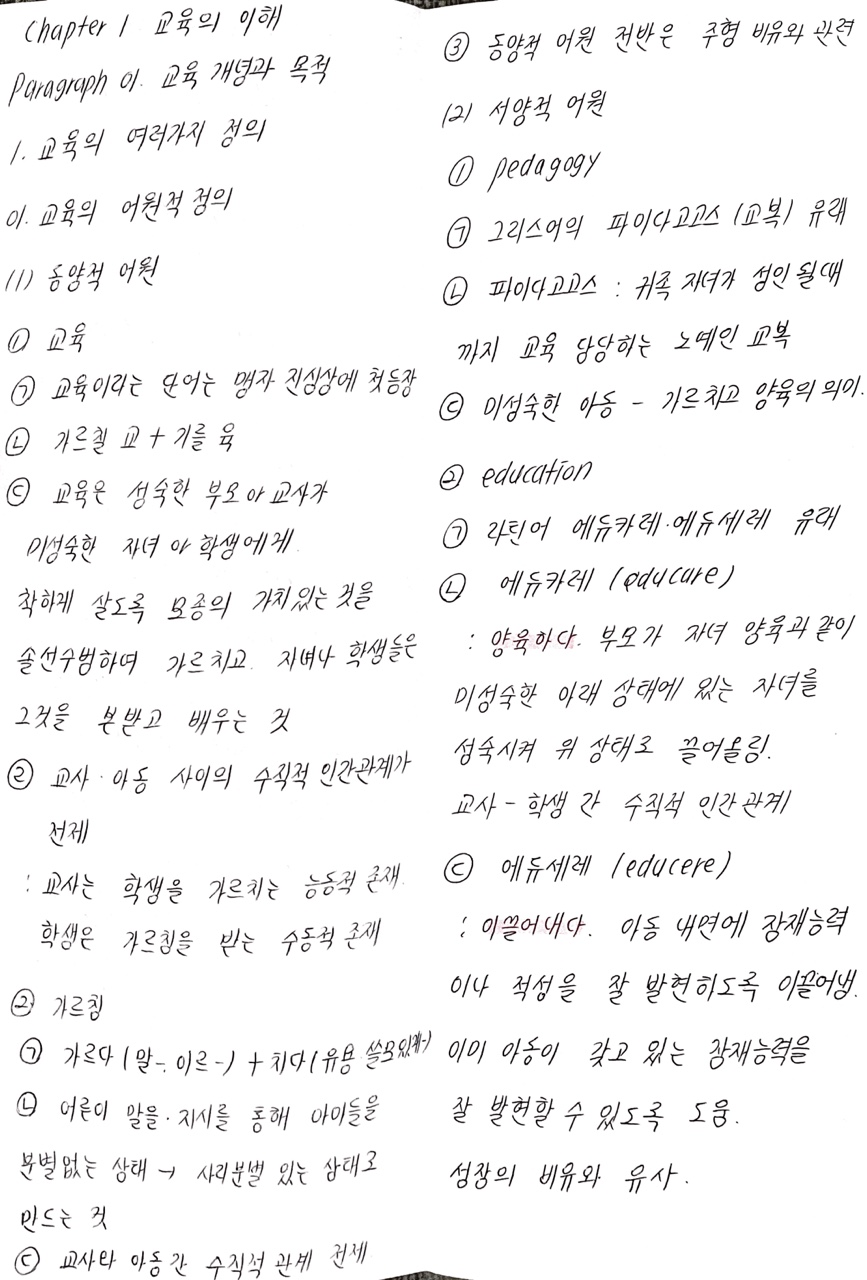 Chapter 1 교육의 이해
Paragraph 01. 교육 개념과 목적
1. 교육의 여러가지 정의
01. 교육의 어원적 정의
(1) 동양적 어원
① 교육
㉠ 교육이라는 단어는 맹자 진심상에 첫등장
㉡ 가르칠 교 + 기를 육
㉢ 교육은 성숙한 부모아 교사가
미성숙한 자녀 아 학생에게
착하게 살도록 모종의 가치있는 것을
솔선수범하여 가르치고. 자녀나 학생들은
그것을 본받고 배우는 것
② 교사·아동 사이의 수직적 인간관계가
전제
: 교사는 학생을 가르치는 능동적 존재.
학생은 가르침을 받는 수동적 존재
② 가르침
㉠ 가르다 (말-. 이르-) + 치다 (유용·쓸모있게-)
㉡ 어른이 말을·지시를 통해 아이들을
분별없는 상태 → 사리분별 있는 상태로
만드는 것
㉢ 교사와 아동간 수직적 관계 전제
③ 동양적 어원 전반은 주형 비유와 관련
(2) 서양적 어원
① pedagogy
㉠ 그리스어의 파이다고고스 (교복) 유래
㉡ 파이다고고스 : 귀족 자녀가 성인 될때
까지 교육 담당하는 노예인 교복
㉢ 미성숙한 아동 - 가르치고 양육의 의미.
② education
㉠ 라틴어 에듀카레·에듀세레 유래
㉡ 에듀카레 (educare)
: 양육하다. 부모가 자녀 양육과 같이
미성숙한 아래 상태에 있는 자녀를
성숙시켜 위 상태로 끌어올림.
교사 - 학생 간 수직적 인간관계
㉢ 에듀세레 (educere)
: 이끌어내다. 아동 내면에 잠재능력
이나 적성을 잘 발현하도록 이끌어냄.
이미 아동이 갖고 있는 잠재능력을
잘 발현할 수 있도록 도움.
성장의 비유와 유사.